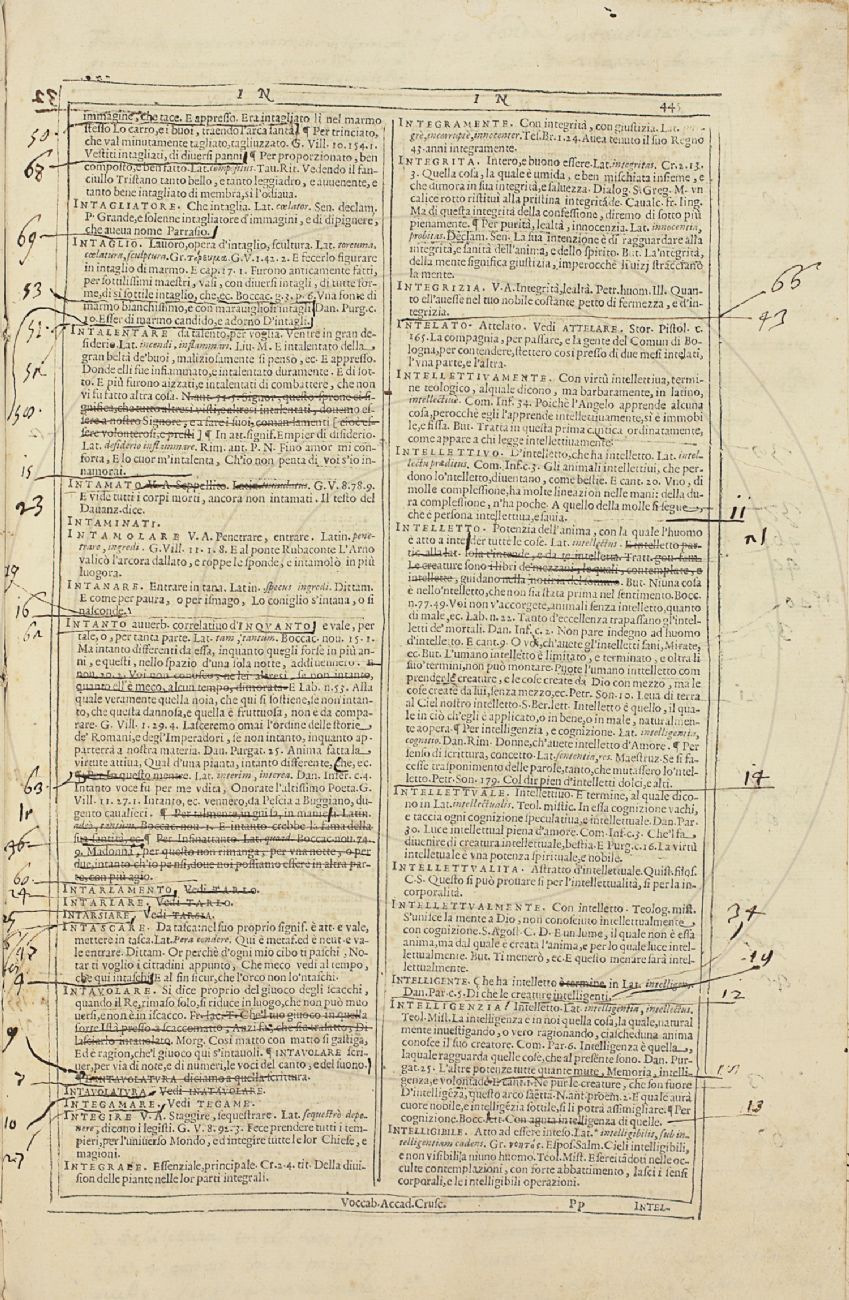 I N
I N
445
immagine, che tace. E appresso. Era intagliato lì nel marmo
stesso Lo carro, e i buoi, traendo l'arca santa. ¶ Per trinciato,
che val minutamente tagliato, tagliuzzato. G. Vill. 10. 154. 1.
Vestiti intagliati, di diuersi panni. ¶ Per proporzionato, ben
composto, e ben fatto. Lat. compositus. Tau. Rit. Vedendo il fan-
ciullo Tristano tanto bello, e tanto leggiadro, e auuenente, e
tanto bene intagliato di membra, si l'odiaua.
INTAGLIATORE. Che intaglia. Lat. cælator. Sen. declam.
P. Grande, e solenne intagliatore d'immagini, e di dipignere,
che aueua nome Parrasio.
INTAGLIO. Lauoro, opera d'intaglio, scultura. Lat. toreuma,
cælatura, sculptura. Gr. τορευμα. G. V. 1. 42. 2. E fecerlo figurare
in intaglio di marmo. E cap. 17. 1. Furono anticamente fatti,
per sottilissimi maestri, vasi, con diuersi intagli, di tutte for-
me, di sì sottile intaglio, che, ec. Boccac. g. 3. p. 6. Vna fonte di
marmo bianchissimo, e con marauigliosi intagli. Dan. Purg. c.
10. Esser di marmo candido, e adorno D'intagli.
INTALENTARE da talento, per voglia. Venire in gran de-
siderio. Lat. incendi, inflammari. Liu. M. E intalentato della
gran beltà de' buoi, maliziosamente si pensò, ec. E appresso.
Donde elli fue infiammato, e intalentato duramente. E di sot-
to. E più furono aizzati, e intalentati di combattere, che non
vi fu fatto altra cosa.
¶ In att. signif. Empier di disiderio.
Lat. desiderio inflammare. Rim. ant. P. N. Fino amor mi con-
forta, E lo cuor m'intalenta, Ch'io non penta di voi s'io in-
namorai.
INTAMATO V. A. Seppellito. G. V. 8. 78. 9.
E vide tutti i corpi morti, ancora non intamati. Il testo del
Dauanz. dice.
INTAMINATI.
INTAMOLARE V. A. Penetrare, entrare. Latin. pene-
trare, ingredi. G. Vill. 11. 1. 8. E al ponte Rubaconte L'Arno
valicò l'arcora dallato, e roppe le sponde, e intamolò in più
luogora.
INTANARE. Entrare in tana. Latin. specus ingredi. Dittam.
E come per paura, o per ismago, Lo coniglio s'intana, o si
nasconde.
INTANTO auuerb. correlatiuo d'INQVANTO, e vale, per
tale, o, per tanta parte. Lat. tam, tantum. Boccac. nou. 15. 1.
Ma intanto differenti da essa, inquanto quegli forse in più an-
ni, e questi, nello spazio d'una sola notte, addiuennero.
E Lab. n. 53. Alla
quale veramente quella noia, che qui si sostiene, se non intan-
to, che questa dannosa, e quella è fruttuosa, non è da compa-
rare. G. Vill. 1. 29. 4. Lasceremo omai l'ordine delle storie
de' Romani, e degl'Imperadori, se non intanto, inquanto ap-
parterrà a nostra materia. Dan. Purgat. 25. Anima fatta la
virtute attiua, Qual d'una pianta, intanto differente, Che, ec.
¶ Per In questo mentre. Lat. interim, interea. Dan. Infer. c. 4.
Intanto voce fu per me vdita, Onorate l'altissimo Poeta. G.
Vill. 11. 27. 1. Intanto, ec. vennero, da Pescia a Buggiano, du-
gento caualieri. ¶ Per talmente, in guisa, in maniera. Latin.
9. Madonna, per questo non rimanga, per vna notte, o per
due, intanto ch'io pensi, doue noi possiamo essere in altra par-
te, con più agio.
INTARLAMENTO. Vedi TARLO.
INTARLARE. Vedi TARLO.
INTARSIARE. Vedi TARSIA.
INTASCARE. Da tasca: nel suo proprio signif. è att. e vale,
mettere in tasca. Lat. Pera condere. Qui è metaf. ed è neut. e va-
le entrare. Dittam. Or perchè d'ogni mio cibo ti paschi, No-
tar ti voglio i cittadini appunto, Che meco vedi al tempo,
che qui intaschi, E al fin sicur, che l'orco non lo 'ntaschi.
INTAVOLARE. Si dice proprio del giuoco degli scacchi,
quando il Re, rimaso solo, si riduce in luogo, che non può muo-
uersi, e non è in iscacco.
Morg. Così matto con matto si gastiga,
Ed è ragion, che'l giuoco qui s'intauoli. ¶ INTAVOLARE scri-
uer, per via di note, e di numeri, le voci del canto, e del suono.
¶ INTAVOLATURA diciamo a quella scrittura.
INTAVOLATURA. Vedi INTAVOLARE.
INTEGAMARE. Vedi TEGAME.
INTEGIRE V. A. Staggire, sequestrare. Lat. sequestrò depo-
nere, dicono i legisti. G. V. 8. 92. 3. Fece prendere tutti i tem-
pieri, per l'vniuerso Mondo, ed integire tutte le lor Chiese, e
magioni.
INTEGRALE. Essenziale, principale. Cr. 2. 4. tit. Della diui-
sion delle piante nelle lor parti integrali.
INTEGRAMENTE. Con integrità, con giustizia. Lat.
grè, incorruptè, innocenter. Tes. Br. 1. 24. Auea tenuto il suo Regno
43. anni integramente.
INTEGRITA. Intero, e buono essere. Lat. integritas. Cr. 2. 13.
3. Quella cosa, la quale è vmida, e ben mischiata insieme, e
che dimora in sua integrità, e saluezza. Dialog. S. Greg. M. vn
calice rotto ristituì alla pristina integritade. Caualc. fr. ling.
Ma di questa integrità della confessione, diremo di sotto più
pienamente. ¶ Per purità, lealtà, innocenzia. Lat. innocentia,
probitas. Declam. Sen. La sua intenzione è di ragguardare alla
integrità, e sanità dell'anima, e dello spirito. But. La 'ntegrità,
della mente significa giustizia, imperocchè li vizj stracciano
la mente.
INTEGRIZIA. V. A. Integrità, lealtà. Petr. huom. Ill. Quan-
to ell'auesse nel tuo nobile costante petto di fermezza, e d'in-
tegrizia.
INTELATO. Attelato. Vedi ATTELARE. Stor. Pistol. c.
165. La compagnia, per passare, e la gente del Comun di Bo-
logna, per contendere, stettero così presso di due mesi intelati,
l'vna parte, e l'altra.
INTELLETTIVAMENTE. Con virtù intellettiua, termi-
ne teologico, al quale dicono, ma barbaramente, in latino,
intellectiuè. Com. Inf. 34. Poichè l'Angelo apprende alcuna
cosa, perocchè egli l'apprende intellettiuamente, si è immobi
le, e fissa. But. Tratta in questa prima cantica ordinatamente,
come appare a chi legge intellettiuamente.
INTELLETTIVO. D'intelletto, che ha intelletto. Lat. intel-
lectu præditus. Com. Inf. c. 3. Gli animali intellettiui, che per-
dono lo 'ntelletto, diuentano, come bestie. E cant. 20. Vno, di
molle complessione, ha molte lineazion nelle mani: della du-
ra complessione, n'ha poche. A quello della molle si segue,
che è persona intellettiua, e sauia.
INTELLETTO. Potenzia dell'anima, con la quale l'huomo
è atto a intender tutte le cose. Lat. intellectus.
But. Niuna cosa
è nello 'ntelletto, che non sia stata prima nel sentimento. Bocc.
n. 77. 49. Voi non v'accorgete, animali senza intelletto, quanto
di male, ec. Lab. n. 22. Tanto d'eccellenza trapassano gl'intel-
letti de' mortali. Dan. Inf. c. 2. Non pare indegno ad huomo
d'intelletto. E cant. 9. O voi, ch'auete gl'intelletti sani, Mirate,
ec. But. L'umano intelletto è limitato, e terminato, e oltra li
suo' termini, non può montare. Puote l'umano intelletto com
prender le creature, e le cose create da Dio con mezzo, ma le
cose create da lui, senza mezzo, ec. Petr. Son. 10. Leua di terra
al Ciel nostro intelletto. S. Ber. lett. Intelletto è quello, il qua-
le in ciò ch'egli è applicato, o in bene, o in male, naturalmen-
te aopera. ¶ Per intelligenzia, e cognizione. Lat. intelligentia,
cognitio. Dan. Rim. Donne, ch'auete intelletto d'Amore. ¶ Per
senso di scrittura, concetto. Lat. sententia, res. Maestruz. Se si fa-
cesse trasponimento delle parole, tanto, che mutassero lo 'ntel-
letto. Petr. Son. 179. Col dir pien d'intelletti dolci, e alti.
INTELLETTVALE. Intellettiuo. E termine, al quale dico-
no in Lat. intellectualis. Teol. mistic. In essa cognizione vachi,
e taccia ogni cognizione speculatiua, e intellettuale. Dan. Par.
30. Luce intellettual piena d'amore. Com. Inf. c. 3. Che'l fa
diuenire di creatura intellettuale, bestia. E Purg. c. 16. La virtù
intellettuale è vna potenza spirituale, e nobile.
INTELLETTVALITA. Astratto d'intellettuale. Quist. filos.
C. S. Questo si può prouare sì per l'intellettualità, sì per la in-
corporalità.
INTELLETTVALMENTE. Con intelletto. Teolog. mist.
S'unisce la mente a Dio, non conosciuto intellettualmente
con cognizione. S. Agost. C. D. E un lume, il quale non è essa
anima, ma dal quale è creata l'anima, e per lo quale luce intel-
lettualmente. But. Ti menerò, ec. E questo menare sarà intel-
lettualmente.
INTELLIGENTE. Che ha intelletto è termine, in Lat. intelligens.
Dan. Par. c. 5. Di che le creature intelligenti.
INTELLIGENZIA. Intelletto. Lat. intelligentia, intellectus.
Teol. Mist. La intelligenzia è in noi quella cosa, la quale, natural
mente inuestigando, o vero ragionando, ciascheduna anima
conosce il suo creatore. Com. Par. 6. Intelligenza è quella,
la quale ragguarda quelle cose, che al presente sono. Dan. Pur-
gat. 25. L'altre potenze tutte quante mute, Memoria, intelli-
genza, e volontade. E cant. 1. Nè pur le creature, che son fuore
D'intelligenza, quest'arco saetta. N. ant. proem. 2. E quale aurà
cuore nobile, e intelligenzia sottile, sì li potrà assimigliare. ¶ Per
cognizione. Bocc. lett. Con aguta intelligenzia di quelle.
INTELLIGIBILE. Atto ad essere inteso. Lat. intelligibilis, sub in-
telligentiam cadens. Gr. νοητός. Espos. Salm. Cieli intelligibili,
e non visibili a niuno huomo. Teol. Mist. Esercitadoti nelle oc-
culte contemplazioni, con forte abbattimento, lasci i sensi
corporali, e le intelligibili operazioni.
Voccab. Accad. Crusc.
Pp
INTEL-
50
68
69
53
51
15
23
19
16
61
63
36
60
24
25
9
7
10
27
66
43
11
17
34
19
12
13